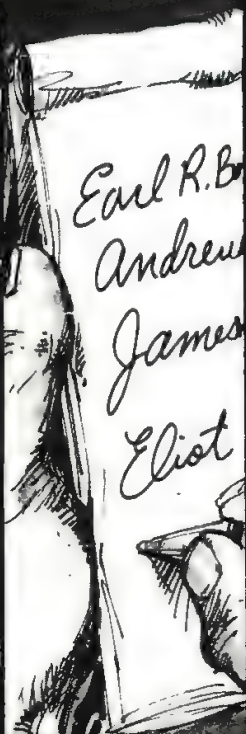 Earl R. B
Andrew
James
Eliot